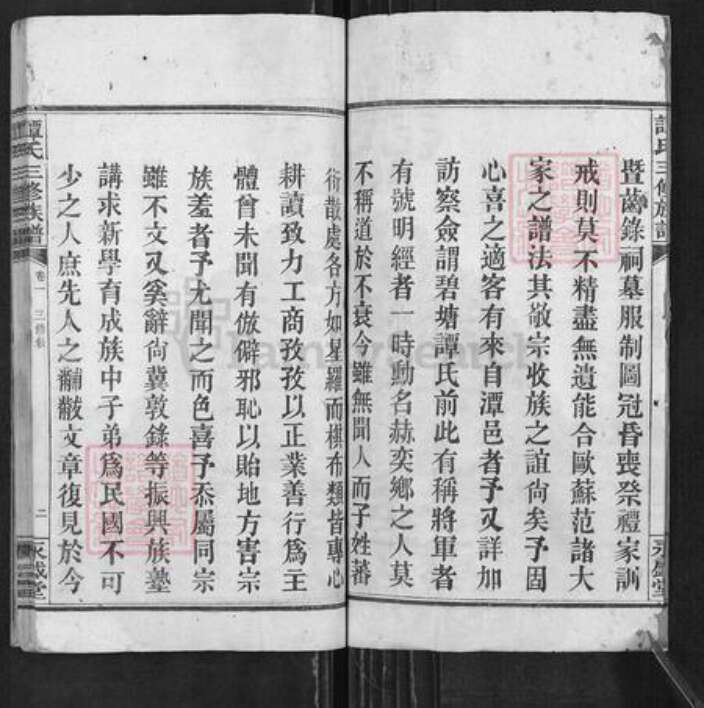 譚氏三修族譜
永盛堂
暨齒錄祠墓服制圖冠昏喪祭禮家訓
戒則莫不精盡無遺能合歐蘇范諸大
家之譜法其敬宗收族之誼尙矣予固
心喜之適客有來自潭邑者予又詳加
訪察僉謂碧塘譚氏前此有稱將軍者
有號明經者一時勳名赫奕鄉之人莫
不稱道於不衰今雖無聞人而子姓蕃
衍散處各方如星羅而棋布類皆專心
耕讀致力工商孜孜以正業善行爲王
體曾未聞有倣僻邪恥以貽地方害宗
族羞者予尤聞之而色喜予忝屬同宗
雖不文又奚辭尙冀敦錄等振興族塾
講求新學育成族中子弟爲民國不可
少之人庶先人之黼黻文章復見於今
譚氏三修族譜
卷一
三修敘
二
永盛堂
FamilySearch